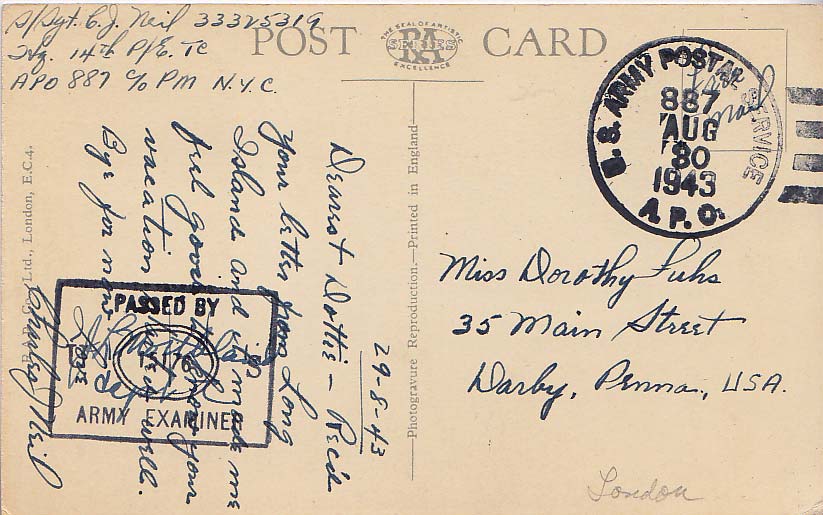 S/Sgt. C.J. Neil 33325319
Hq. 14th P/E. TC
APO 887 c/o PM N.Y.C.
POST CARD
THE SEAL OF ARTISTIC
RA
SERIES
EXCELLENCE
Free
Mail
U.S. ARMY POSTAL SERVICE
887
AUG
30
1943
A.P.O.
29-8-43
Dearest Dottie - Rec'd
your letter from Long
Island and it made me
feel good to know your
vacation went well.
Bye for now.
Love
Charles Neil
PASSED BY
ARMY EXAMINER
Co., Ltd., London, E.C.4.
Photogravure Reproduction.—Printed in England
Miss Dorothy Fuhs
35 Main Street
Darby, Penna., USA.
London